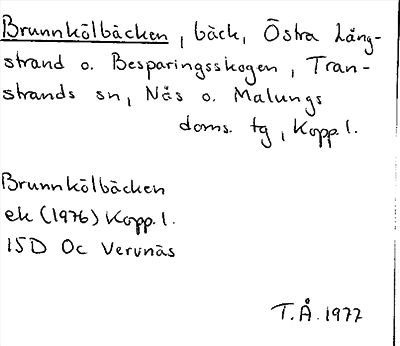 Brunnkölbäcken, bäck, Östra Lång-
strand o. Besparingsskogen, Tran-
strands sn, Nås o. Malungs
doms. tg, Kopp. l.
Brunnkölbäcken
ek (1976) Kopp. l.
15D Oc Vervnäs
T.Å. 1977